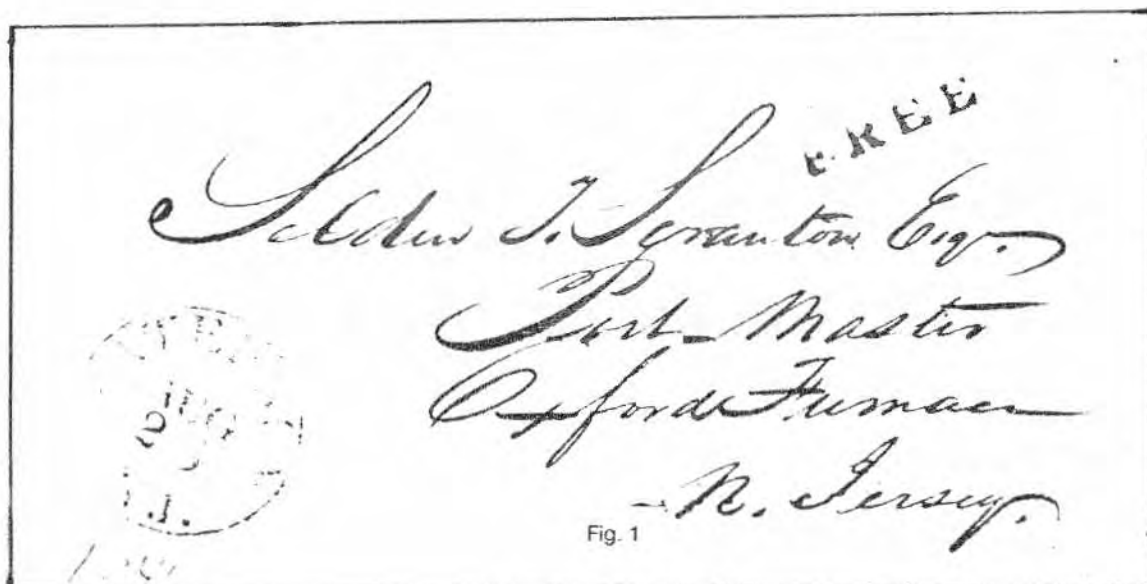 FREE
Selden T. Scranton Esqr.
Post Master
Oxford Furnace
N. Jersey.
AUG
2
Fig. 1